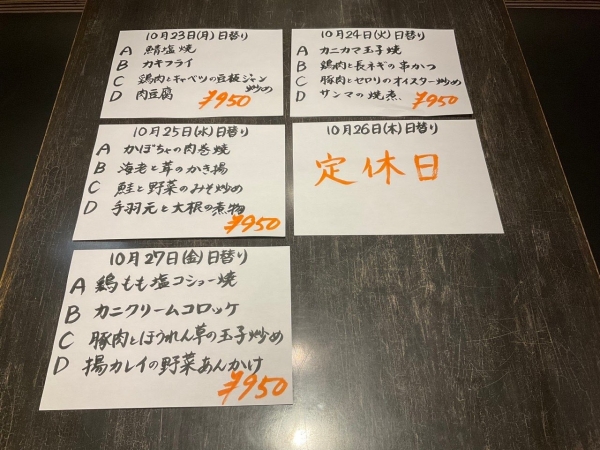 10月23日(月)日替り
A 鯖塩焼
B カキフライ
C 鶏肉とキャベツの豆板ジャン炒め
D 肉豆腐
¥950
10月24日(火)日替り
A カニカマ玉子焼
B 鶏肉と長ネギの串かつ
C 豚肉とセロリのオイスター炒め
D サンマの焼煮
¥950
10月25日(水)日替り
A かぼちゃの肉巻焼
B 海老と茸のかき揚
C 鮭と野菜のみそ炒め
D 手羽元と大根の煮物
¥950
10月26日(木)日替り
定休日
10月27日(金)日替り
A 鶏もも塩コショー焼
B カニクリームコロッケ
C 豚肉とほうれん草の玉子炒め
D 揚カレイの野菜あんかけ
¥950